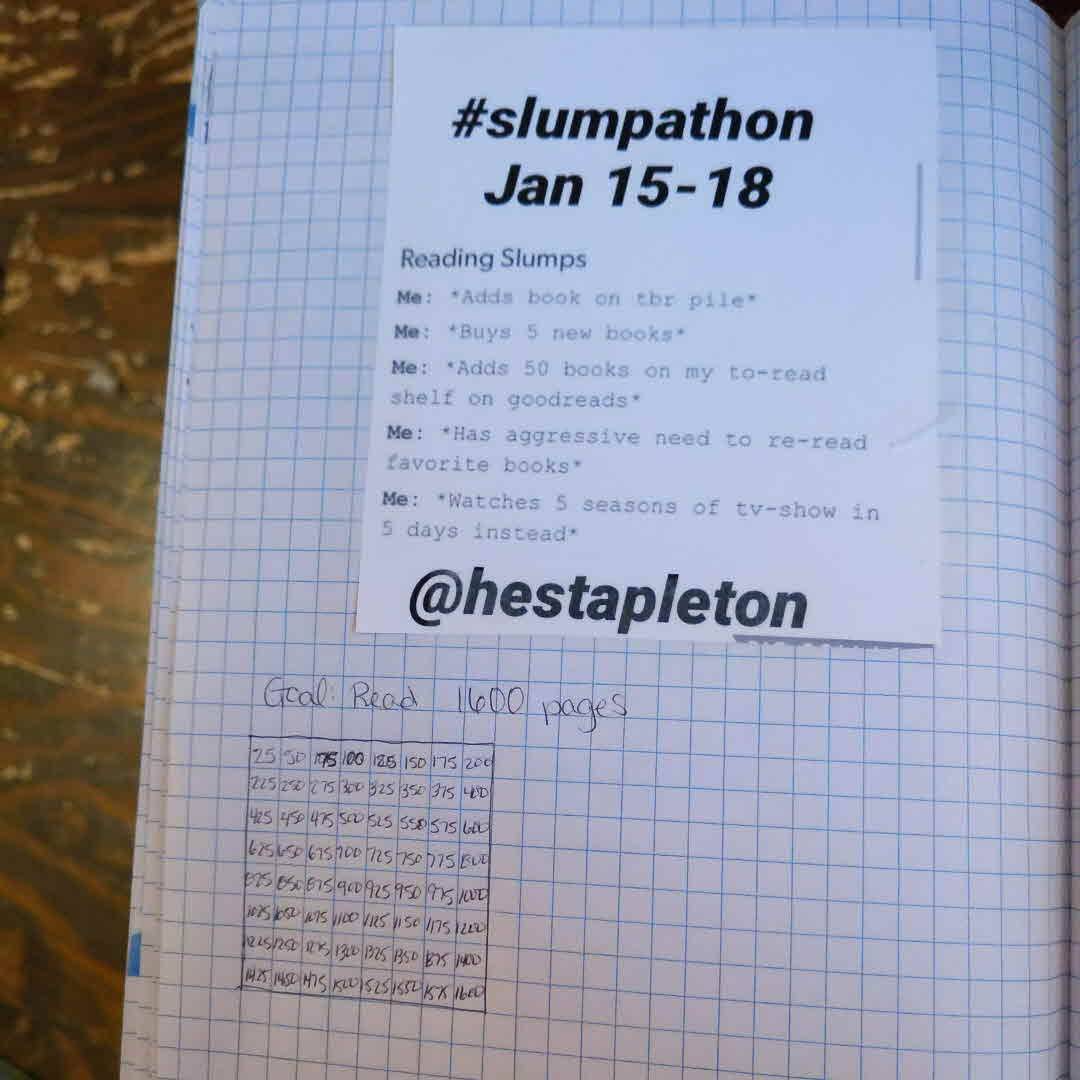 #slumpathon
Jan 15-18
Reading Slumps
Me: *Adds book on tbr pile*
Me: *Buys 5 new books*
Me: *Adds 50 books on my to-read
shelf on goodreads*
Me: *Has aggressive need to re-read
favorite books*
Me: *Watches 5 seasons of tv-show in
5 days instead*
@hestapleton
Goal: Read 1600 pages
25 50 75 100 125 150 175 200
225 250 275 300 325 350 375 400
425 450 475 500 525 550 575 600
625 650 675 700 725 750 775 800
825 850 875 900 925 950 975 1000
1025 1050 1075 1100 1125 1150 1175 1200
1225 1250 1275 1300 1325 1350 1375 1400
1425 1450 1475 1500 1525 1550 1575 1600